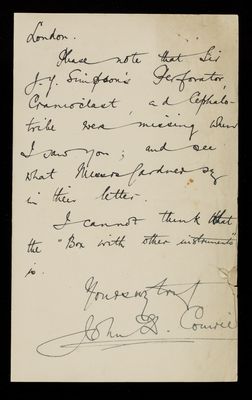 London.
Please note that Sir
J. Y. Simpson's Perforator,
Cranioclast, ad Cephalo-
tribe were missing when
I saw you; and see
what Messrs Gardner say
in their letter.
I cannot think that
the "Box with other instruments"
is.
Yours truly
John D. Comrie